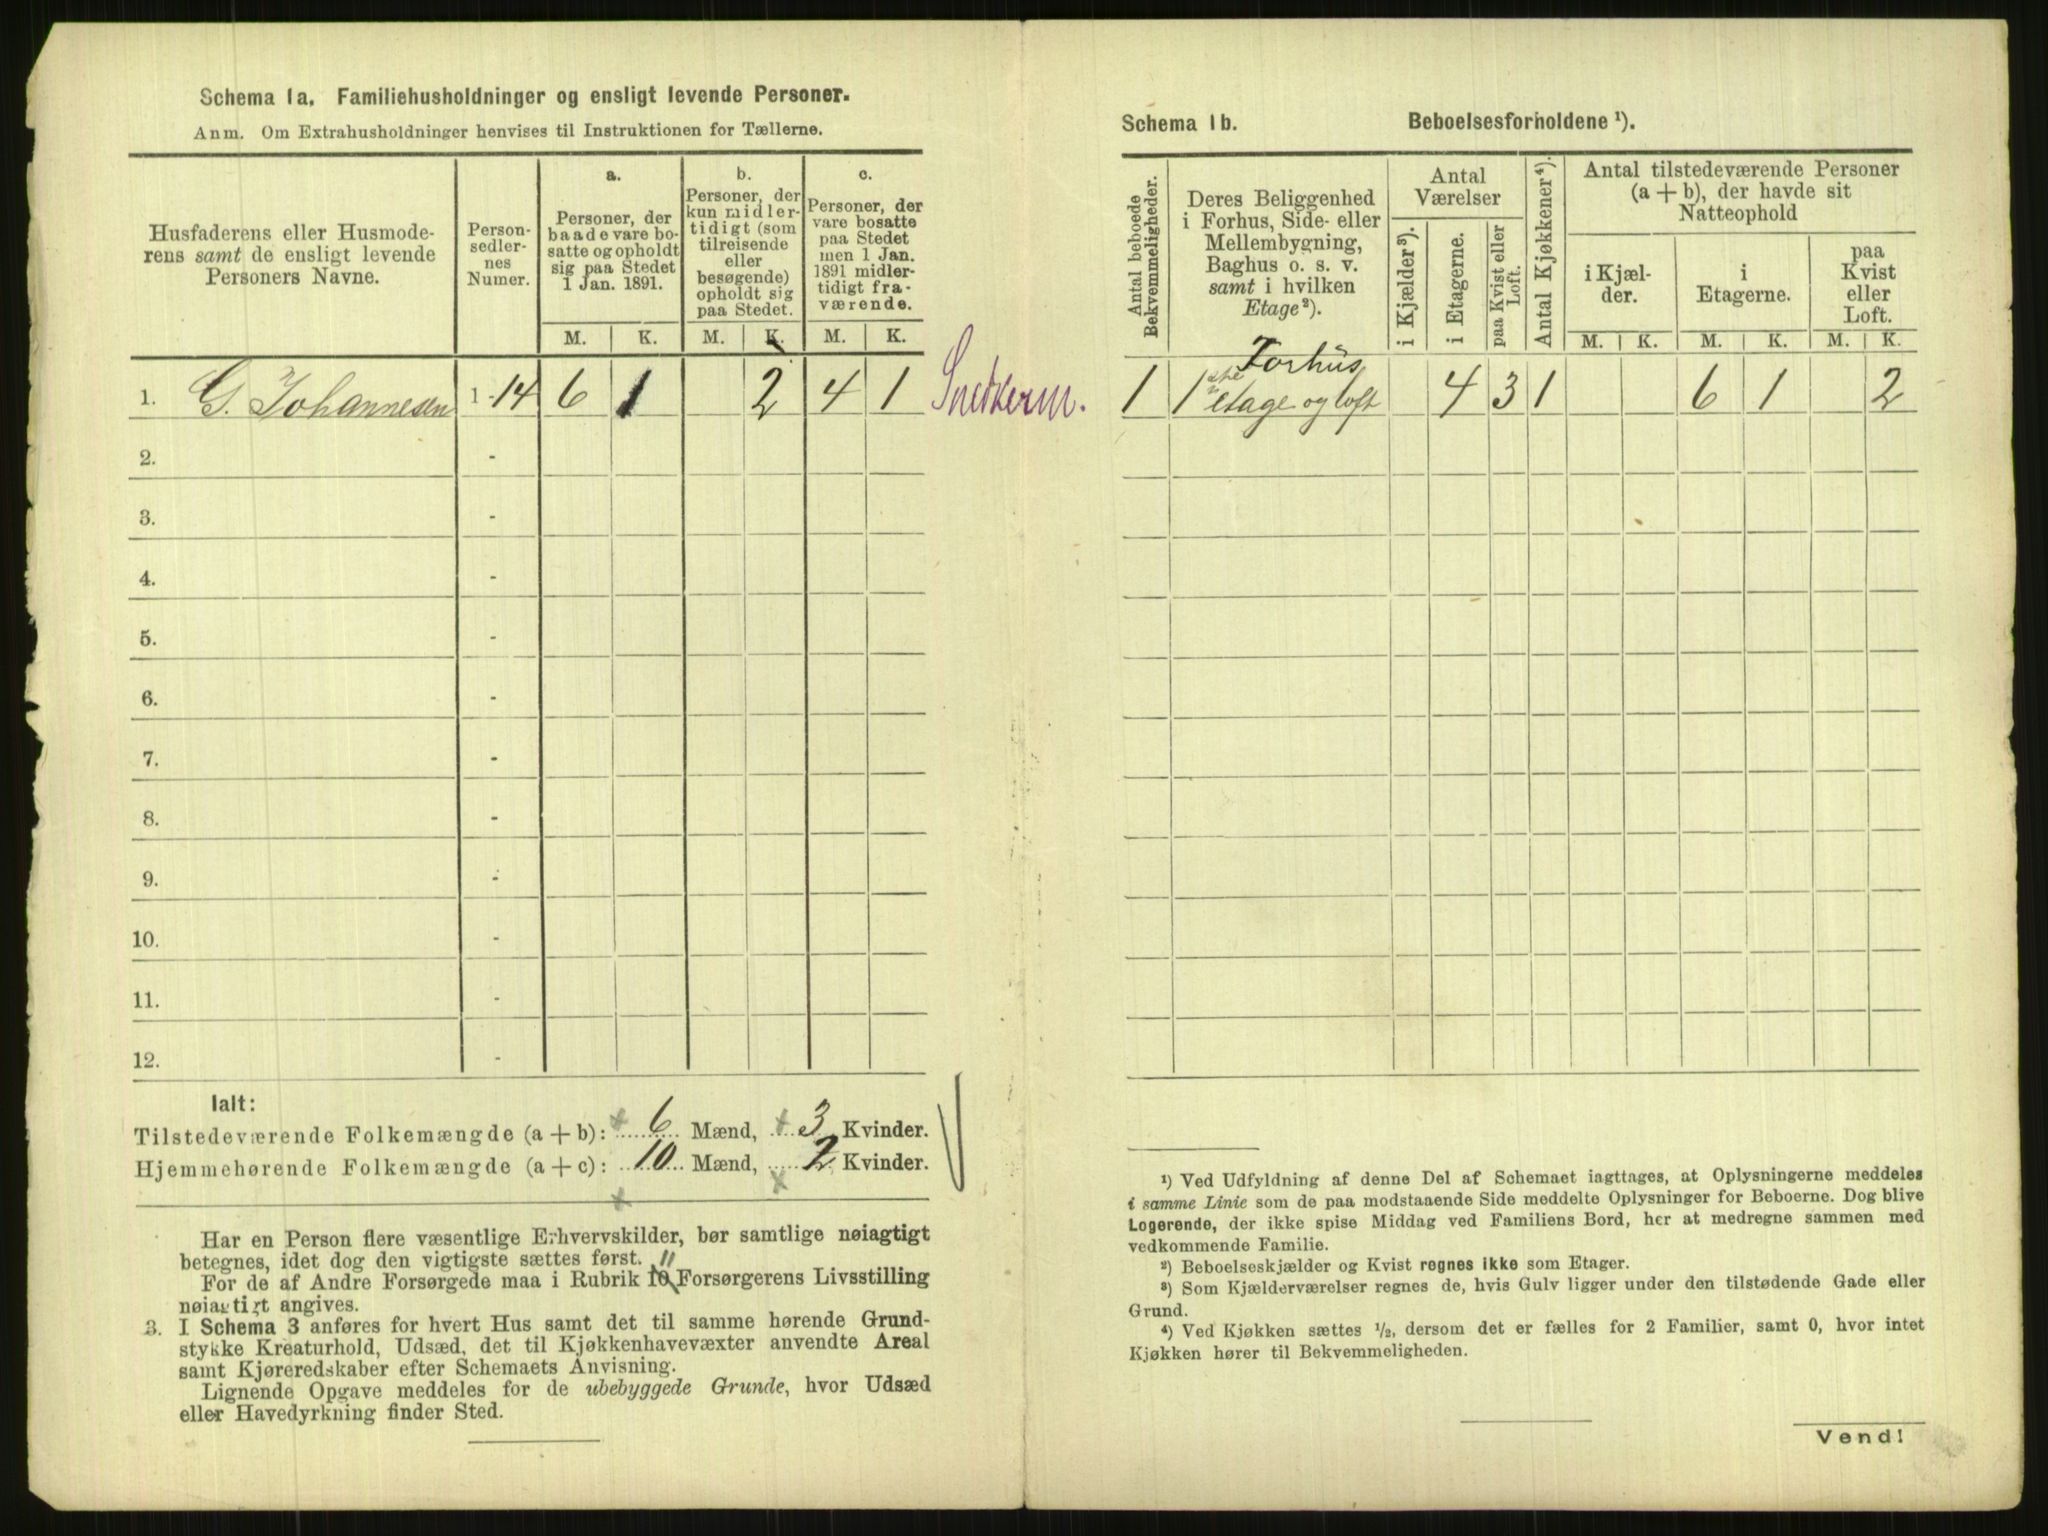 Schema 1a. Familiehusholdninger og ensligt levende Personer.
Anm. Om Extrahusholdninger henvises til Instruktionen for Tællerne.
Husfaderens eller Husmode-
rens samt de ensligt levende
Personers Navne.
Person-
sedler-
nes
Numer.
a.
Personer, der
baade vare bo-
satte og opholdt
sig paa Stedet
1 Jan. 1891.
b.
Personer, der
kun midler-
tidigt (som
tilreisende
eller
besøgende)
opholdt sig
paa Stedet.
c.
Personer, der
vare bosatte
paa Stedet
men 1 Jan.
1891 midler-
tidigt fra-
værende.
M. K. M. K. M. K.
1. G. Johannesen 1-14 6 1 2 4 1 Snedkerm.
2. -
3. -
4. -
5. -
6. -
7. -
8. -
9. -
10. -
11. -
12. -
Ialt:
Tilstedeværende Folkemængde (a + b): 6 Mænd, 3 Kvinder.
Hjemmehørende Folkemængde (a + c): 10 Mænd, 2 Kvinder.
Har en Person flere væsentlige Erhvervskilder, bør samtlige nøiagtigt
betegnes, idet dog den vigtigste sættes først.
11
For de af Andre Forsørgede maa i Rubrik 10 Forsørgerens Livsstilling
nøiagtigt angives.
3. I Schema 3 anføres for hvert Hus samt det til samme hørende Grund-
stykke Kreaturhold, Udsæd, det til Kjøkkenhavevæxter anvendte Areal
samt Kjøreredskaber efter Schemaets Anvisning.
Lignende Opgave meddeles for de ubebyggede Grunde, hvor Udsæd
eller Havedyrkning finder Sted.
Schema 1b. Beboelsesforholdene ¹).
Antal beboede
Bekvemmeligheder.
Deres Beliggenhed
i Forhus, Side- eller
Mellembygning,
Baghus o. s. v.
samt i hvilken
Etage²).
Antal
Værelser
i Kjælder³).
i Etagerne.
paa Kvist eller
Loft.
Antal Kjøkkener⁴).
Antal tilstedeværende Personer
(a + b), der havde sit
Natteophold
i Kjæl-
der.
i
Etagerne.
paa
Kvist
eller
Loft.
M. K. M. K. M. K.
Forhus
1 1ste etage og loft 4 3 1 6 1 2
¹) Ved Udfyldning af denne Del af Schemaet iagttages, at Oplysningerne meddeles
i samme Linie som de paa modstaaende Side meddelte Oplysninger for Beboerne. Dog blive
Logerende, der ikke spise Middag ved Familiens Bord, her at medregne sammen med
vedkommende Familie.
²) Beboelseskjælder og Kvist regnes ikke som Etager.
³) Som Kjælderværelser regnes de, hvis Gulv ligger under den tilstødende Gade eller
Grund.
⁴) Ved Kjøkken sættes ½, dersom det er fælles for 2 Familier, samt 0, hvor intet
Kjøkken hører til Bekvemmeligheden.
Vend!